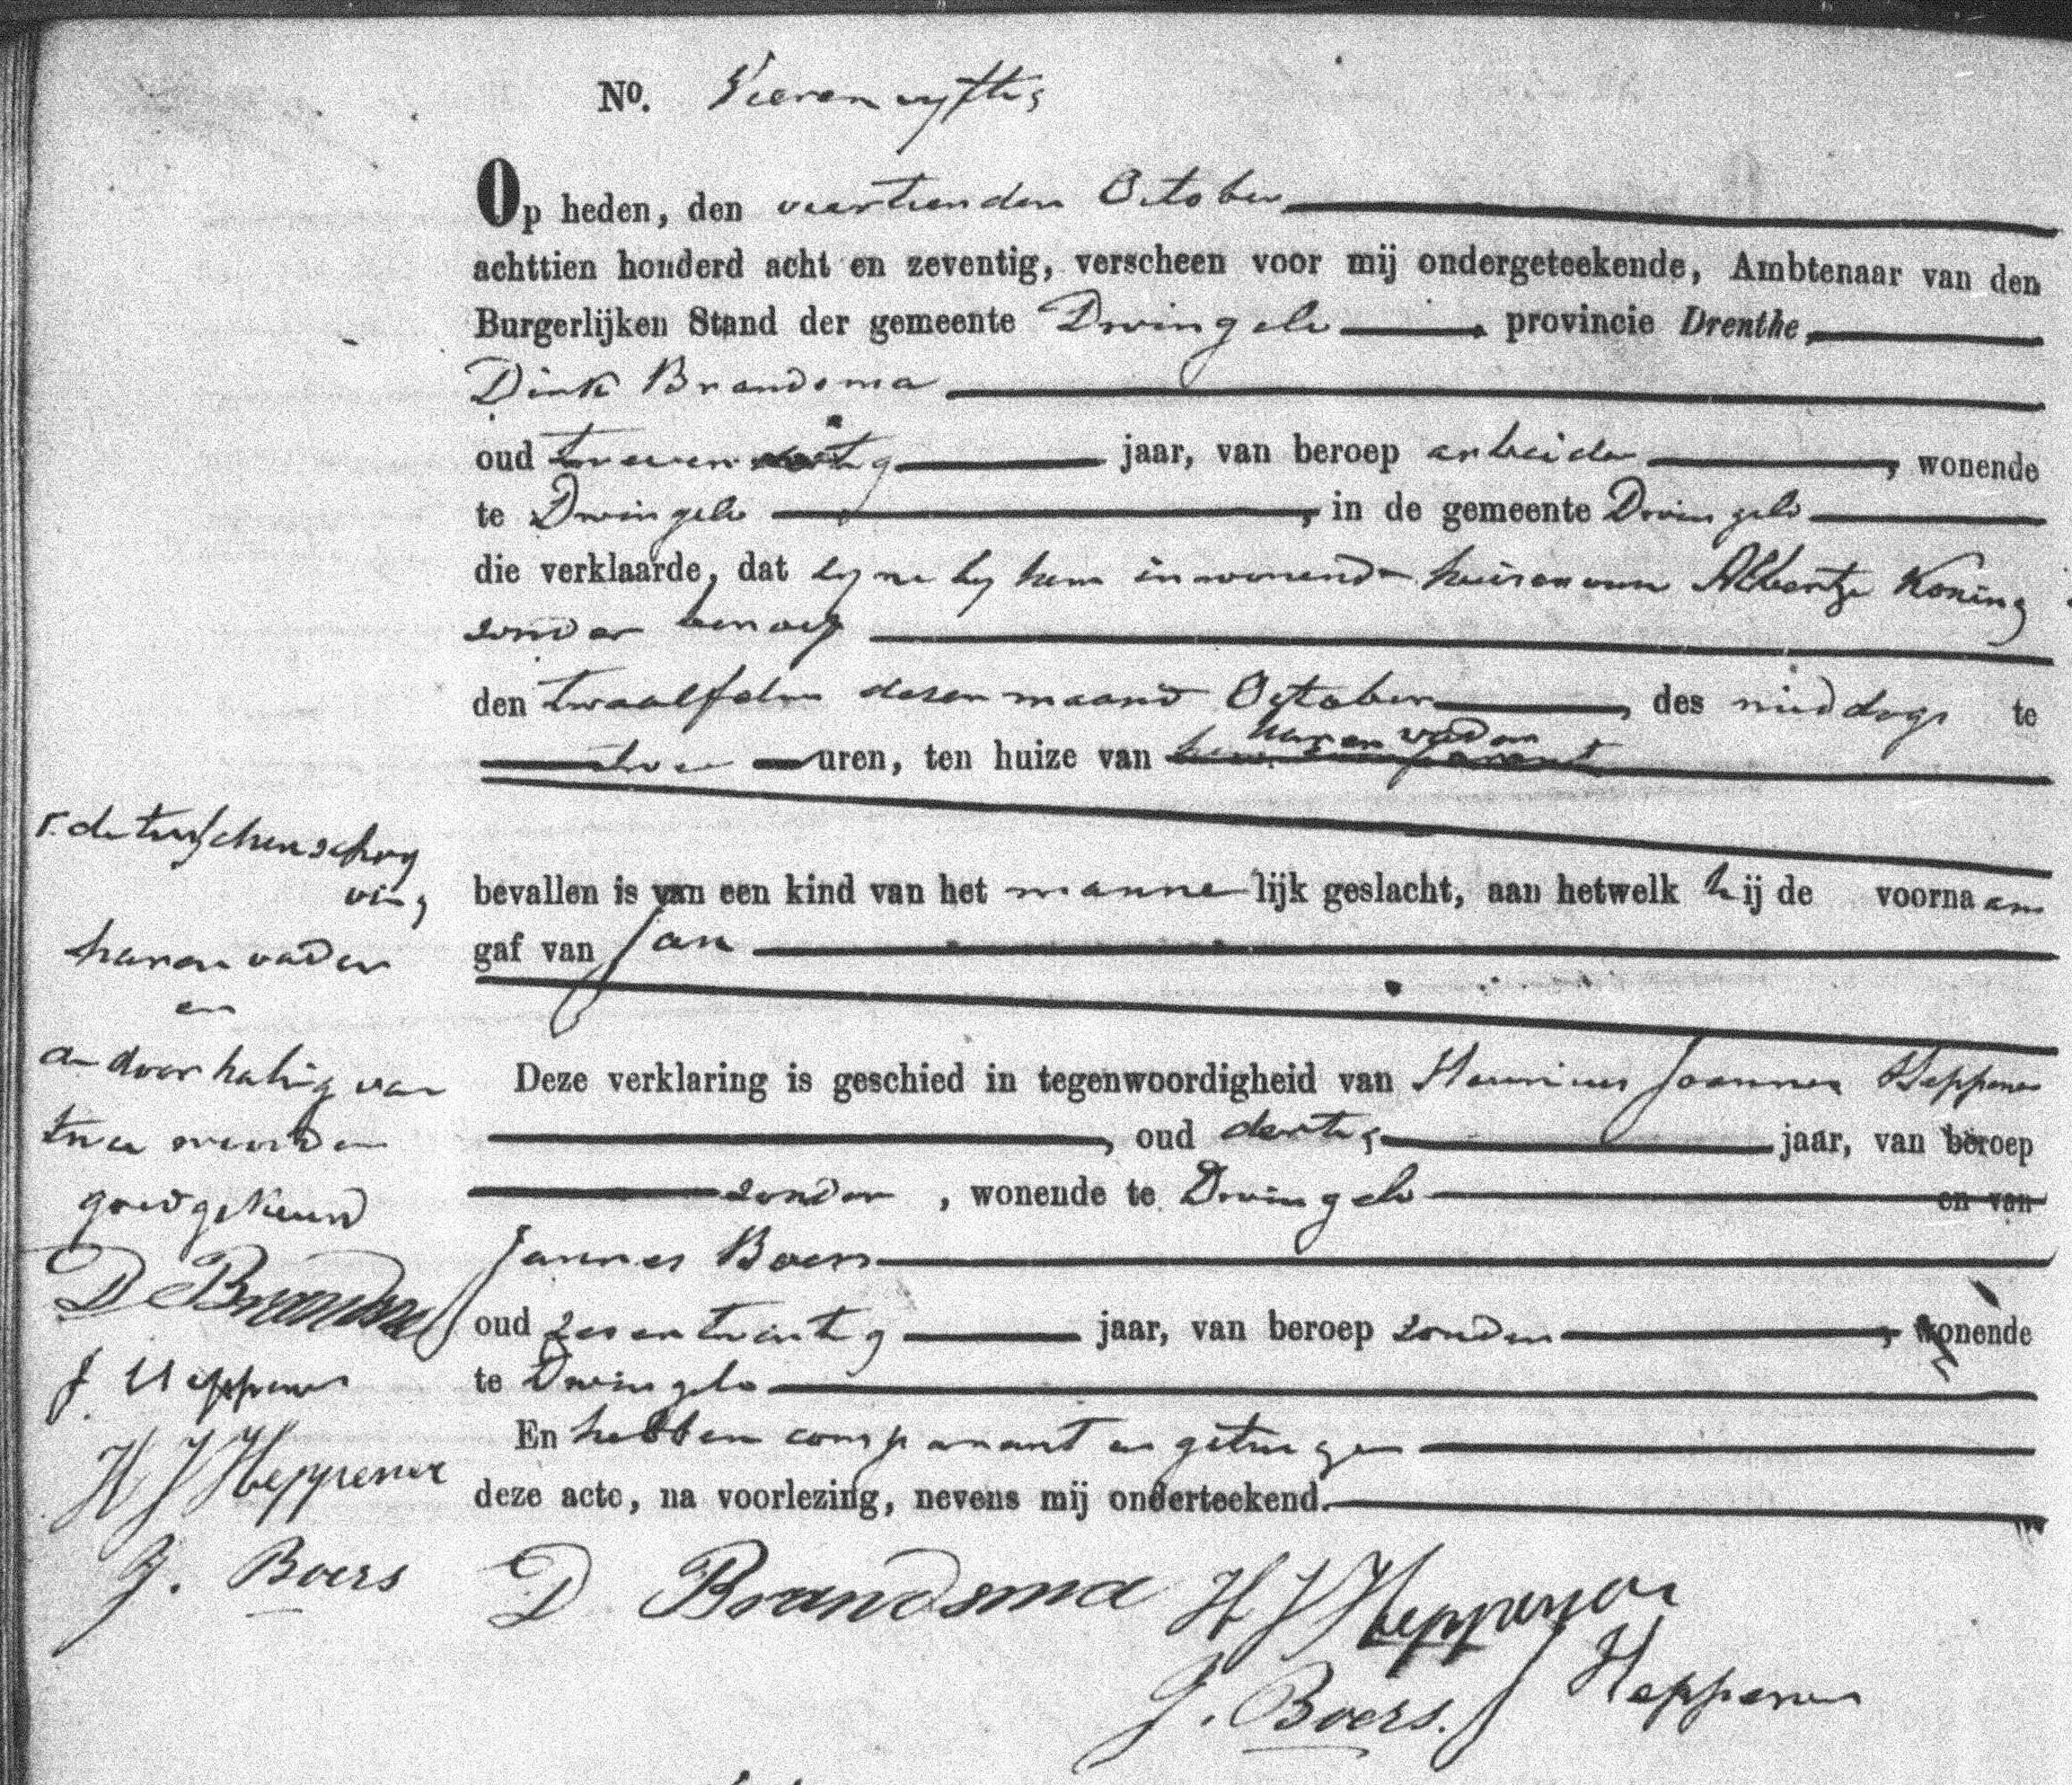 No. Vierenvyftig
Op heden, den veertienden October
achttien honderd acht en zeventig, verscheen voor mij ondergeteekende, Ambtenaar van den
Burgerlijken Stand der gemeente Dwingelo, provincie Drenthe,
Dirk Brandsma
oud jaar, van beroep arbeider, wonende
te Dwingelo, in de gemeente Dwingelo
die verklaarde, dat zyne by hem inwonende huisvrouw Albertje Koning
zonder beroep
den twaalfden dezer maand October, des middags te
twee uren, ten huize van haren vader
bevallen is van een kind van het mannelijk geslacht, aan hetwelk hij de voornaam
gaf van Jan
Deze verklaring is geschied in tegenwoordigheid van Henricus Joannes Heppener
, oud dertig jaar, van beroep
zonder, wonende te Dwingelo en van
Jannes Boers
oud zesentwintig jaar, van beroep zonder, wonende
te Dwingelo
En hebben comparant en getuigen
deze acte, na voorlezing, nevens mij onderteekend.
D Brandsma H J Heppener
J. Boers. J Heppener
de tusschenschry
ving
haren vader
en
de doorhaling van
twee woorden
goedgekeurd
D Brandsma
J Heppener
H J Heppener
J. Boers